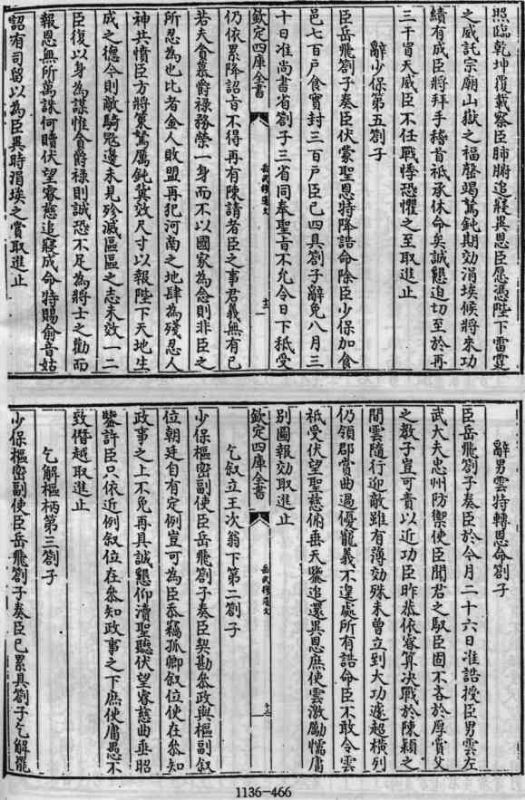 照臨乾坤覆載察臣肺腑追寢異恩臣慿憑陛下雷霆
之威託宗廟山嶽之福罄竭駑鈍期効涓埃候將來功
績有成臣將拜手稽首祗承休命矣誠懇迫切至於再
三干冒天威臣不任戰悸恐懼之至取進止
辭少保第五劄子
臣岳飛劄子奏臣伏蒙聖恩特降誥命除臣少保加食
邑七百戶食實封三百戶臣已四具劄子辭免八月三
十日准尚書省劄子三省同奉聖旨不允今日下祗受
欽定四庫全書
岳武穆遺文
十二
仍依累降詔旨不得再有陳請者臣之事君義無有已
若夫貪慕爵祿務榮一身而不以國家為念則非臣之
所忍為也比者金人敗盟再犯河南之地肆為殘忍人
神共憤臣方將策駑厲鈍冀效尺寸以報陛下天地生
成之德今則敵騎冦邊未見殄滅區區之志未效一二
臣復以身為謀惟貪爵祿則誠恐不足為將士之勸而
報恩無所萬誅何贖伏望睿慈追寢成命特賜俞音姑
詔有司留以為臣異時涓埃之賞取進止
辭男雲特轉恩命劄子
臣岳飛劄子奏臣於今月二十六日准誥授臣男雲左
武大夫忠州防禦使臣聞君之馭臣固不吝於厚賞父
之教子豈可責以近功臣昨恭依睿算決戰於陳潁之
間雲隨行迎敵雖有薄効殊未曾立到大功遽超橫列
仍領郡當曲過優寵義不遑處所有誥命臣不敢令雲
祗受伏望聖慈俯垂天鑒追還異恩庶使雲激勵懦庸
別圖報効取進止
欽定四庫全書
岳武穆遺文
乞叙立王次翁下第二劄子
少保樞密副使臣岳飛劄子奏臣契勘參政與樞副叙
位朝廷自有定例豈可為臣忝竊孤卿叙位使在參知
政事之上不免再具誠懇仰瀆聖聽伏望睿慈曲垂昭
鑒許臣只依近例叙位在參知政事之下庶使庸愚不
致僭越取進止
乞解樞柄第三劄子
少保樞密副使臣岳飛劄子奏臣已累具劄子乞解罷
1136-466